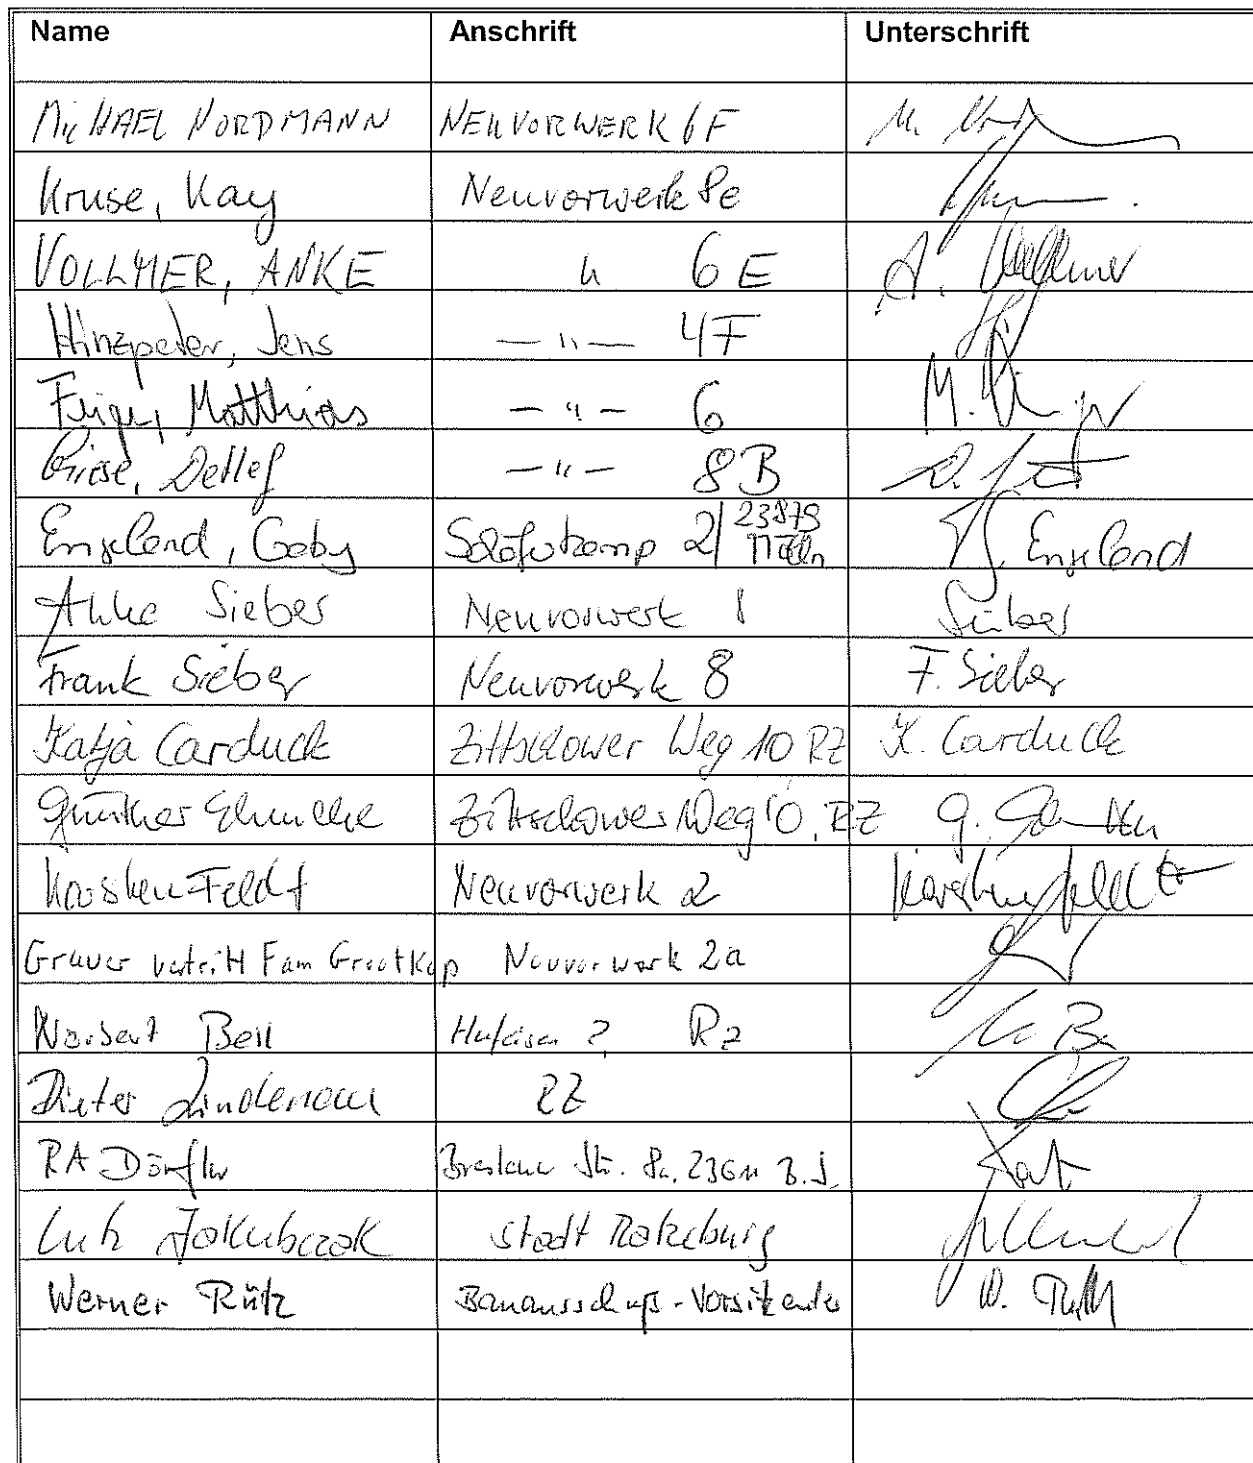 Name Anschrift Unterschrift
MICHAEL NORDMANN NEUVORWERK 6F M.
Kruse, Kay Neuvorwerk 8e
VOLLMER, ANKE " 6 E A. Vollmer
Hinzpeter, Jens — " — 4F
Matthias — " — 6 M.
Giese, Detlef — " — 8B D.
Engelend, Gaby 2/ 23879 Mölln G. Engelend
Anke Sieber Neuvorwerk Sieber
Frank Sieber Neuvorwerk 8 F. Sieber
Katja Carduck Zittschower Weg 10 RZ K. Carduck
Günther Zittschower Weg 10, RZ G.
Karsten Feldt Neuvorwerk 2 Karsten Feldt
Gruver vertritt Fam Grootkop Neuvorwerk 2a
Norbert Beil Hufeisen 2, Rz
Dieter Lindenau RZ
RA Dörfler Breslauer Str. 23611 B.S.
Lutz Jakubczak Stadt Ratzeburg
Werner Rütz Bauausschuß-Vorsitzender W. Rütz